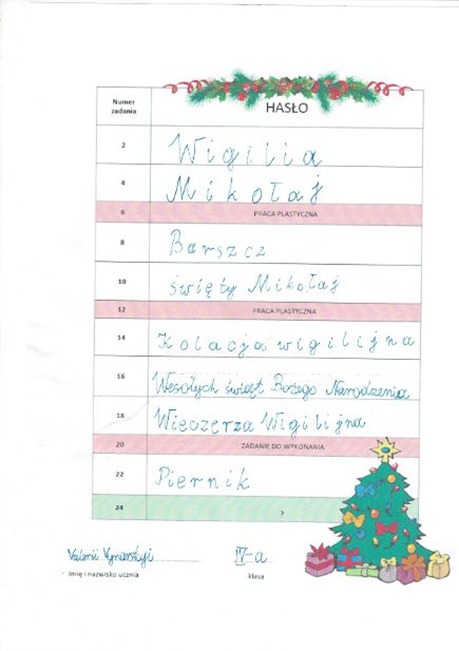 Numer zadania HASŁO
2 Wigilia
4 Mikołaj
6 PRACA PLASTYCZNA
8 Barszcz
10 święty Mikołaj
12 PRACA PLASTYCZNA
14 Kolacja wigilijna
16 Wesołych świąt Bożego Narodzenia
18 Wieczerza Wigilijna
20 ZADANIE DO WYKONANIA
22 Piernik
24 ?
Valerii IV-a
Imię i nazwisko ucznia klasa